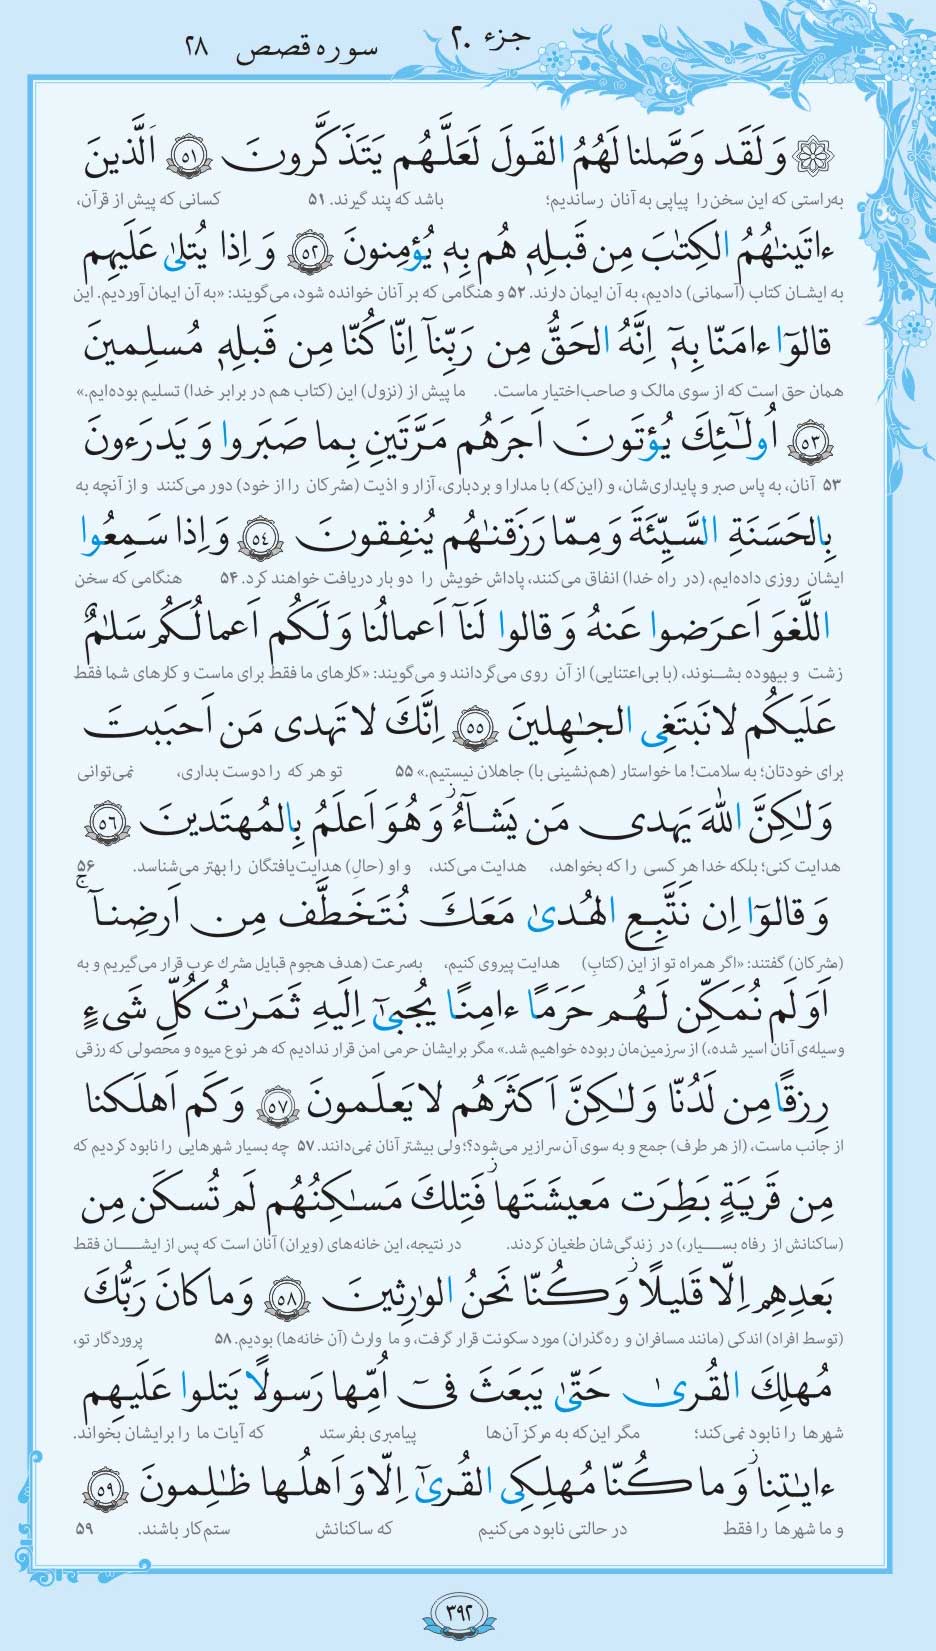 جزء ۲۰ سوره قصص ۲۸
وَلَقَد وَصَّلنا لَهُمُ القَولَ لَعَلَّهُم يَتَذَكَّرونَ ﴿۵۱﴾ اَلَّذينَ
به‌راستی که این سخن را پیاپی به آنان رساندیم؛ باشد که پند گیرند. ۵۱ کسانی که پیش از قرآن،
ءاتَينٰهُمُ الكِتٰبَ مِن قَبلِهٖ هُم بِهٖ يُؤمِنونَ ﴿۵۲﴾ وَ اِذا يُتلىٰ عَلَيهِم
به ایشان کتاب (آسمانی) دادیم، به آن ایمان دارند. ۵۲ و هنگامی که بر آنان خوانده شود، می‌گویند: «به آن ایمان آوردیم. این
قالوٓا ءامَنّا بِهٖٓ اِنَّهُ الحَقُّ مِن رَبِّنآ اِنّا كُنّا مِن قَبلِهٖ مُسلِمينَ
همان حق است که از سوی مالک و صاحب‌اختیار ماست. ما پیش از (نزول) این (کتاب هم در برابر خدا) تسلیم بوده‌ایم.»
﴿۵۳﴾ اُولٰٓئِكَ يُؤتَونَ اَجرَهُم مَرَّتَينِ بِما صَبَروا وَ يَدرَءونَ
۵۳ آنان، به پاس صبر و پایداری‌شان، و (این‌که) با مدارا و بردباری، آزار و اذیت (مشرکان را از خود) دور می‌کنند و از آنچه به
بِالحَسَنَةِ السَّيِّئَةَ وَ مِمّا رَزَقنٰهُم يُنفِقونَ ﴿۵۴﴾ وَ اِذا سَمِعُوا
ایشان روزی داده‌ایم، (در راه خدا) انفاق می‌کنند، پاداش خویش را دو بار دریافت خواهند کرد. ۵۴ هنگامی که سخن
اللَّغوَ اَعرَضوا عَنهُ وَ قالوا لَنآ اَعمالُنا وَ لَكُم اَعمالُكُم سَلٰمٌ
زشت و بیهوده بشنوند، (با بی‌اعتنایی) از آن روی می‌گردانند و می‌گویند: «کارهای ما فقط برای ماست و کارهای شما فقط
عَلَيكُم لا نَبتَغِى الجٰهِلينَ ﴿۵۵﴾ اِنَّكَ لا تَهدى مَن اَحبَبتَ
برای خودتان؛ به سلامت! ما خواستار (هم‌نشینی با) جاهلان نیستیم.» ۵۵ تو هر که را دوست بداری، نمی‌توانی
وَلٰكِنَّ اللّٰهَ يَهدى مَن يَشآءُ ۚ وَ هُوَ اَعلَمُ بِالمُهتَدينَ ﴿۵۶﴾
هدایت کنی؛ بلکه خدا هر کسی را که بخواهد، هدایت می‌کند، و او (حالِ) هدایت‌یافتگان را بهتر می‌شناسد. ۵۶
وَ قالوٓا اِن نَتَّبِعِ الهُدىٰ مَعَكَ نُتَخَطَّف مِن اَرضِنآ ۚ
(مشرکان) گفتند: «اگر همراه تو از این (کتابِ) هدایت، پیروی کنیم، به‌سرعت (هدف هجوم قبایل مشرک عرب قرار می‌گیریم و به
اَوَلَم نُمَكِّن لَهُم حَرَمًا ءامِنًا يُجبىٰٓ اِلَيهِ ثَمَرٰتُ كُلِّ شَىءٍ
وسیله‌ی آنان اسیر شده،) از سرزمین‌مان ربوده خواهیم شد.» مگر برایشان حرمی امن قرار ندادیم که هر نوع میوه و محصولی که رزقی
رِزقًا مِن لَدُنّا وَلٰكِنَّ اَكثَرَهُم لا يَعلَمونَ ﴿۵۷﴾ وَ كَم اَهلَكنا
از جانب ماست، (از هر طرف) جمع و به سوی آن سرازیر می‌شود؟؛ ولی بیشتر آنان نمی‌دانند. ۵۷ چه بسیار شهرهایی را نابود کردیم که
مِن قَريَةٍ بَطِرَت مَعيشَتَها ۖ فَتِلكَ مَسٰكِنُهُم لَم تُسكَن مِن
(ساکنانش از رفاه بسیار،) در زندگی‌شان طغیان کردند. در نتیجه، این خانه‌های (ویران) آنان است که پس از ایشان فقط
بَعدِهِم اِلّا قَليلًا ۖ وَ كُنّا نَحنُ الوارِثينَ ﴿۵۸﴾ وَ ما كانَ رَبُّكَ
(توسط افراد) اندکی (مانند مسافران و ره‌گذران) مورد سکونت قرار گرفت، و ما وارث (آن خانه‌ها) بودیم. ۵۸ پروردگار تو،
مُهلِكَ القُرىٰ حَتّىٰ يَبعَثَ فىٓ اُمِّها رَسولًا يَتلوا عَلَيهِم
شهرها را نابود نمی‌کند؛ مگر این‌که به مرکز آن‌ها پیامبری بفرستد که آیات ما را برایشان بخواند.
ءايٰتِنا ۚ وَ ما كُنّا مُهلِكِى القُرىٰٓ اِلّا وَ اَهلُها ظٰلِمونَ ﴿۵۹﴾
و ما شهرها را فقط در حالتی نابود می‌کنیم که ساکنانش ستم‌کار باشند. ۵۹
۳۹۲